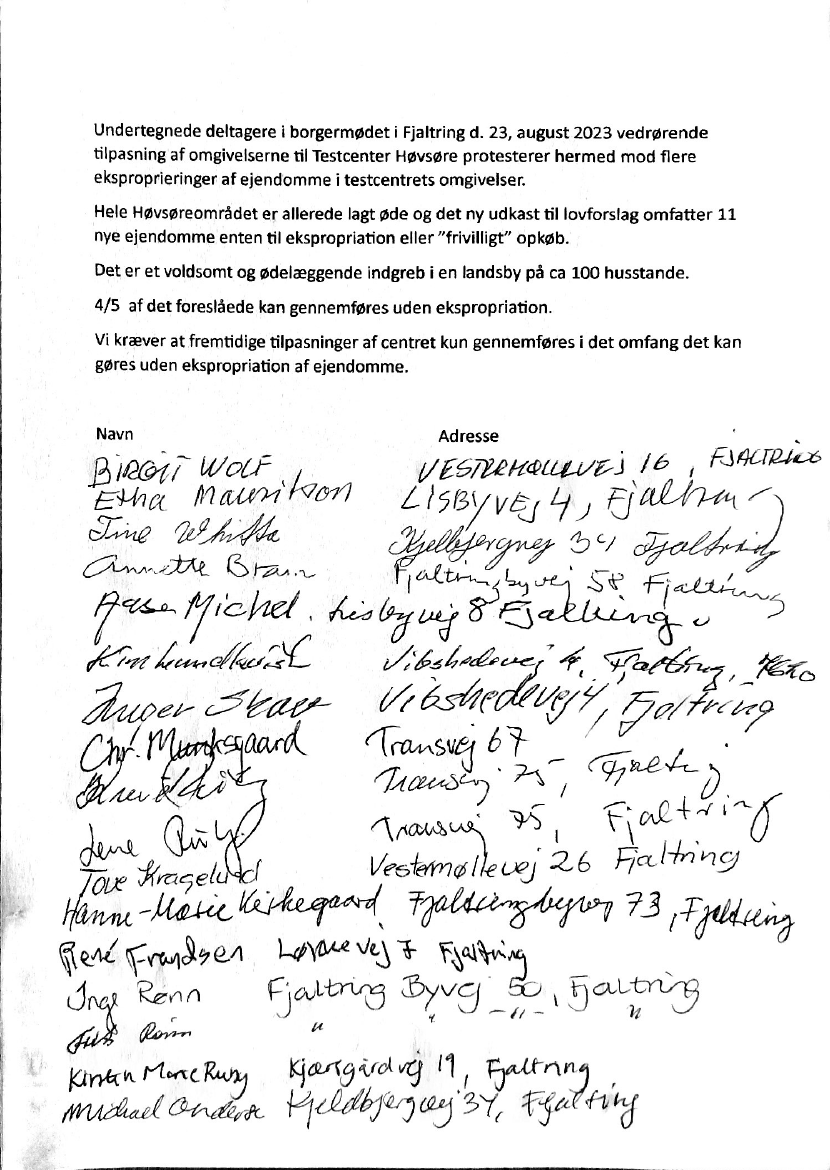 Undertegnede deltagere i borgermødet i Fjaltring d. 23, august 2023 vedrørende
tilpasning af omgivelserne til Testcenter Høvsøre protesterer hermed mod flere
eksproprieringer af ejendomme i testcentrets omgivelser.
Hele Høvsøreområdet er allerede lagt øde og det ny udkast til lovforslag omfatter 11
nye ejendomme enten til ekspropriation eller ”frivilligt” opkøb.
Det er et voldsomt og ødelæggende indgreb i en landsby på ca 100 husstande.
4/5 af det foreslåede kan gennemføres uden ekspropriation.
Vi kræver at fremtidige tilpasninger af centret kun gennemføres i det omfang det kan
gøres uden ekspropriation af ejendomme.
Navn Adresse
BIRGIT WOLF VESTERMØLLEVEJ 16, FJALTRING
Etha Mauritson LISBYVEJ 4, Fjaltring
Tine Kjelbjergvej 34 Fjaltring
Annette Fjaltringbyvej 58 Fjaltring
Aase Michel. Lisbyvej 8 Fjaltring
Kim Lundkvist Vibshedevej 4, Fjaltring,
Inger Vibshedevej 4, Fjaltring
Chr. Munksgaard Transvej 67
Transvej 75, Fjaltring
Lene Transvej 75, Fjaltring
Tove Kragelund Vestermøllevej 26 Fjaltring
Hanne-Marie Kirkegaard Fjaltringbyvej 73, Fjaltring
René Frandsen 7 Fjaltring
Inge Rønn Fjaltring Byvej 50, Fjaltring
Rønn " " -"- "
Kirsten Marie Ruby Kjærsgårdvej 19, Fjaltring
Michael Anderse Kjeldbjergvej 34, Fjaltring